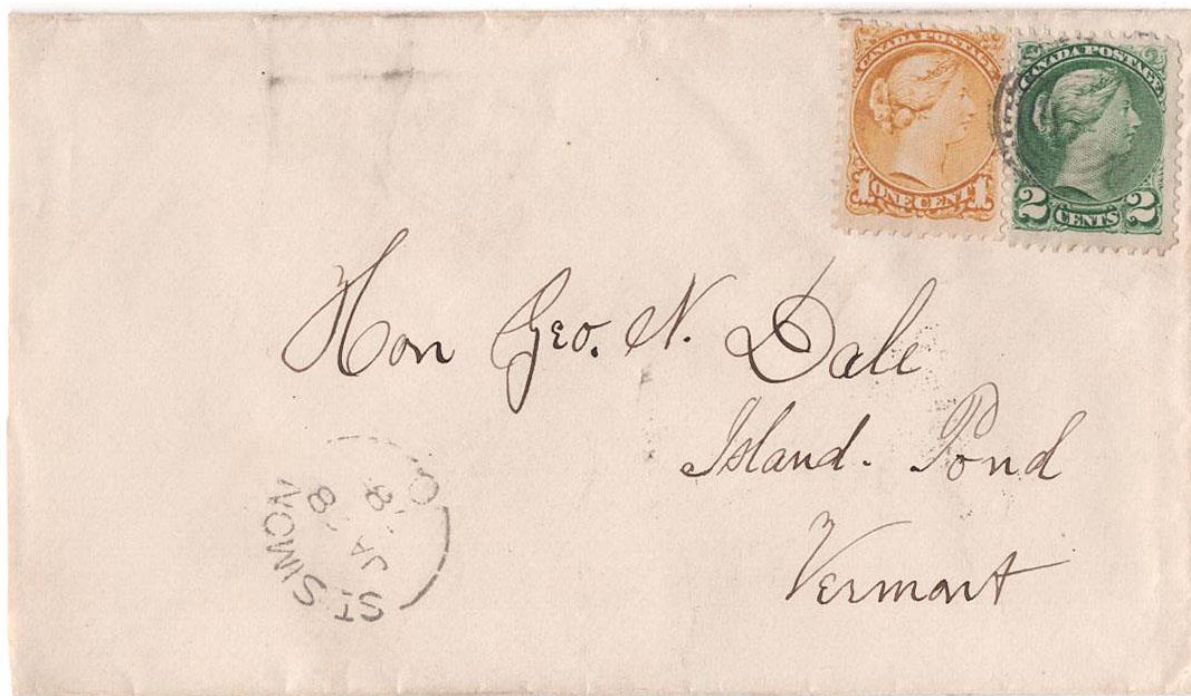 CANADA POSTAGE
1 ONE CENT 1
CANADA POSTAGE
2 CENTS 2
Hon Geo. N. Dale
Island. Pond
Vermont
ST. SIMON
JA 8
Q